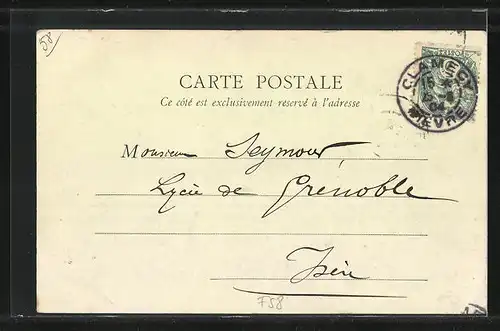 58
CARTE POSTALE
Ce côté est exclusivement réservé à l'adresse
CLAMECY
NIÈVRE
Monsieur Seymour,
Lycée de Grenoble
Isère
F58